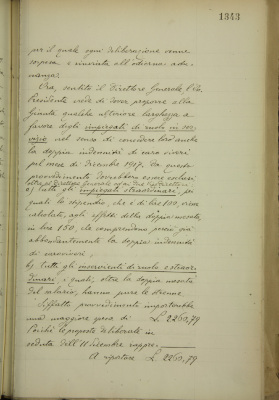 1343
per il quale ogni deliberazione venne
sospesa e rinviata all'odierna adu-
nanza.
Ora, sentito il Direttore Generale, l'On.
Presidente crede di dover proporre alla
Giunta qualche ulteriore larghezza a
favore degli impiegati di ruolo in ser-
vizio nel senso di considerare anche
la doppia indennità di caro viveri
pel mese di Dicembre 1917, da questo
provvedimento dovrebbero essere esclusi
oltre al Direttore Generale ed ai due
a) tutti gli impiegati straordinari, pei
quali lo stipendio, che è di lire 100, viene
calcolato, agli effetti della doppia mesata,
in lire 150, che comprendono perciò già
abbondantemente la doppia indennità
di caroviveri,
b) tutti gli inservienti di ruolo e straor-
dinari, i quali, oltre la doppia mesata
del salario, hanno pure le strenne.
Siffatti provvedimenti importerebbe
una maggiore spesa di L. 2260,79
Poichè le proposte deliberate in
seduta dell'11 dicembre rappre-
A riportare L. 2260,79